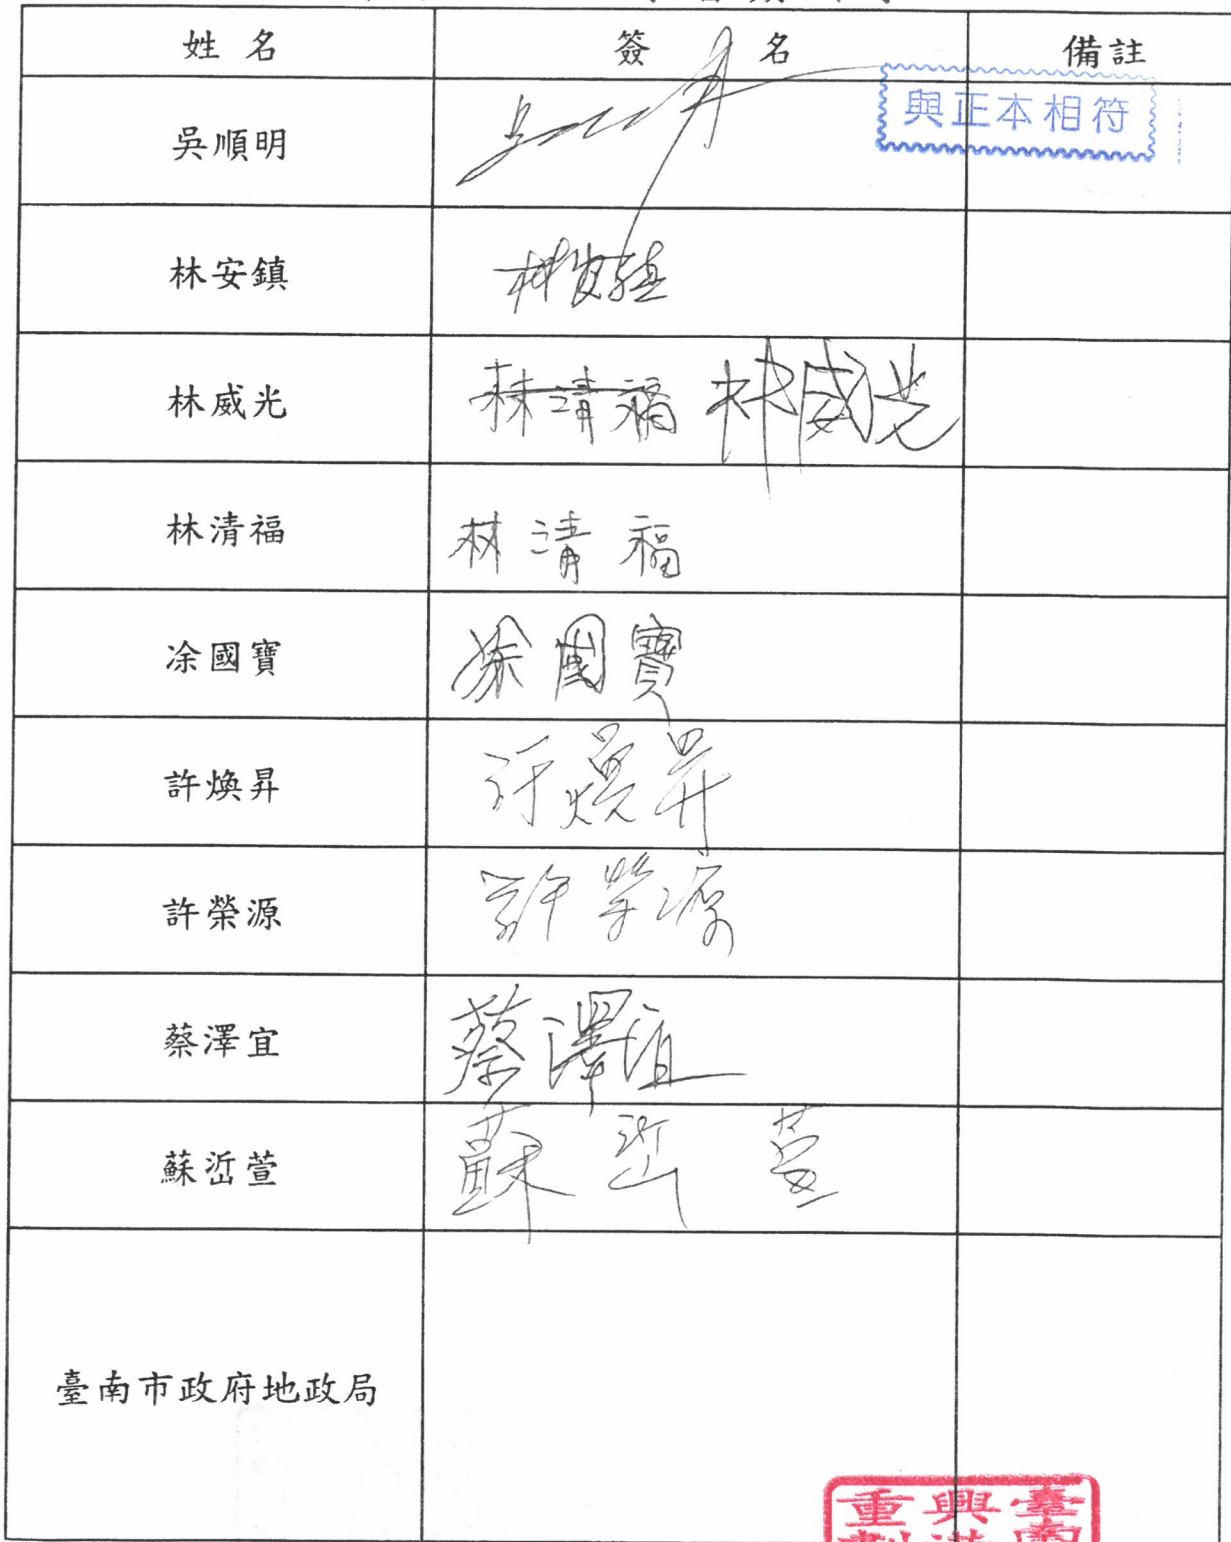 姓名 簽名 備註
與正本相符
吳順明
林安鎮 林安鎮
林威光 林清福 林威光
林清福 林清福
凃國寶 凃國寶
許煥昇 許煥昇
許榮源 許榮源
蔡澤宜 蔡澤宜
蘇泓萱 蘇泓萱
臺南市政府地政局
重興臺